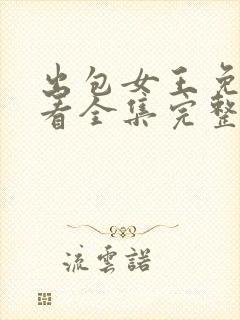 出包女王免
看全集完整
流雲諾